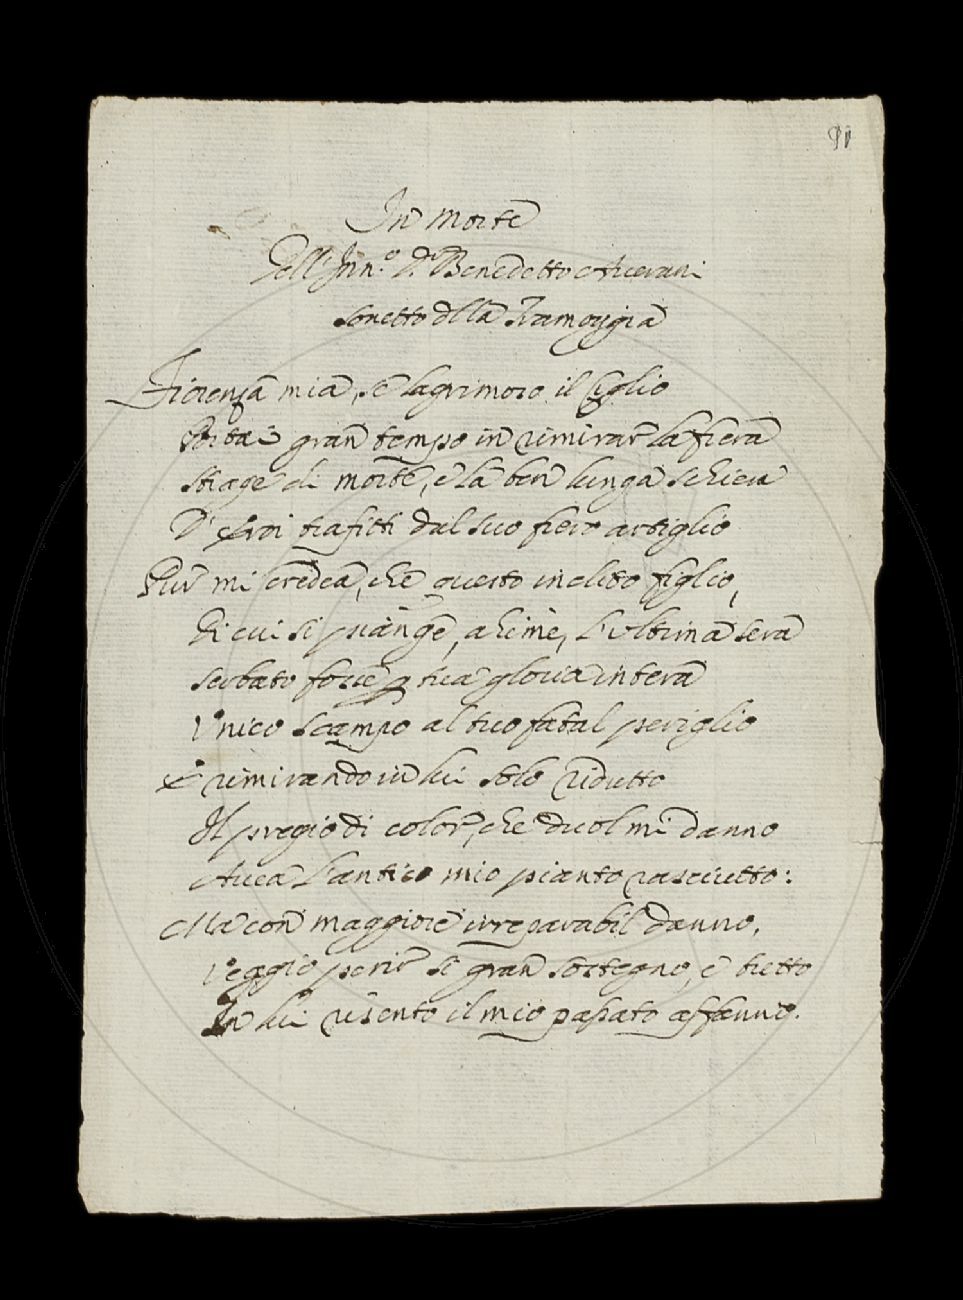 91
In Morte
Dell' Inn.º D.r Benedetto Averani
Sonetto dlla
Fiorenza mia, se lagrimoso il ciglio
Portai gran tempo in rimirar la fiera
Strage di morte, e la ben lunga schiera
D' Eroi trafitti dal suo fiero artiglio
Pur mi credea, che questo inclito figlio,
Di cui si piange, ahime, l'ultima sera
Serbato fosse p tua gloria intera
Unico scampo al tuo fatal periglio
E rimirando in lui solo ridutto
Il pregio di color, che duol mi danno
Avea l'antico mio pianto rasciutto:
Ma con maggiore irreparabil danno,
Veggio perir si gran sostegno, e tutto
In lui risento il mio passato affanno.